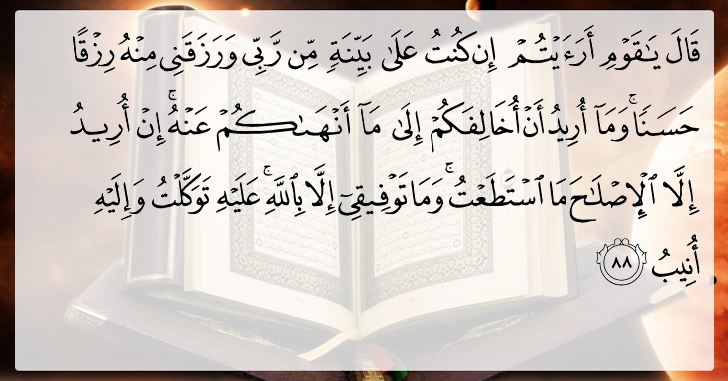 قَالَ يَـٰقَوْمِ أَرَءَيْتُمْ إِن كُنتُ عَلَىٰ بَيِّنَةٍ مِّن رَّبِّى وَرَزَقَنِى مِنْهُ رِزْقًا
حَسَنًا ۚ وَمَآ أُرِيدُ أَنْ أُخَالِفَكُمْ إِلَىٰ مَآ أَنْهَىٰكُمْ عَنْهُ ۚ إِنْ أُرِيدُ
إِلَّا ٱلْإِصْلَـٰحَ مَا ٱسْتَطَعْتُ ۚ وَمَا تَوْفِيقِىٓ إِلَّا بِٱللَّهِ ۚ عَلَيْهِ تَوَكَّلْتُ وَإِلَيْهِ
أُنِيبُ ٨٨